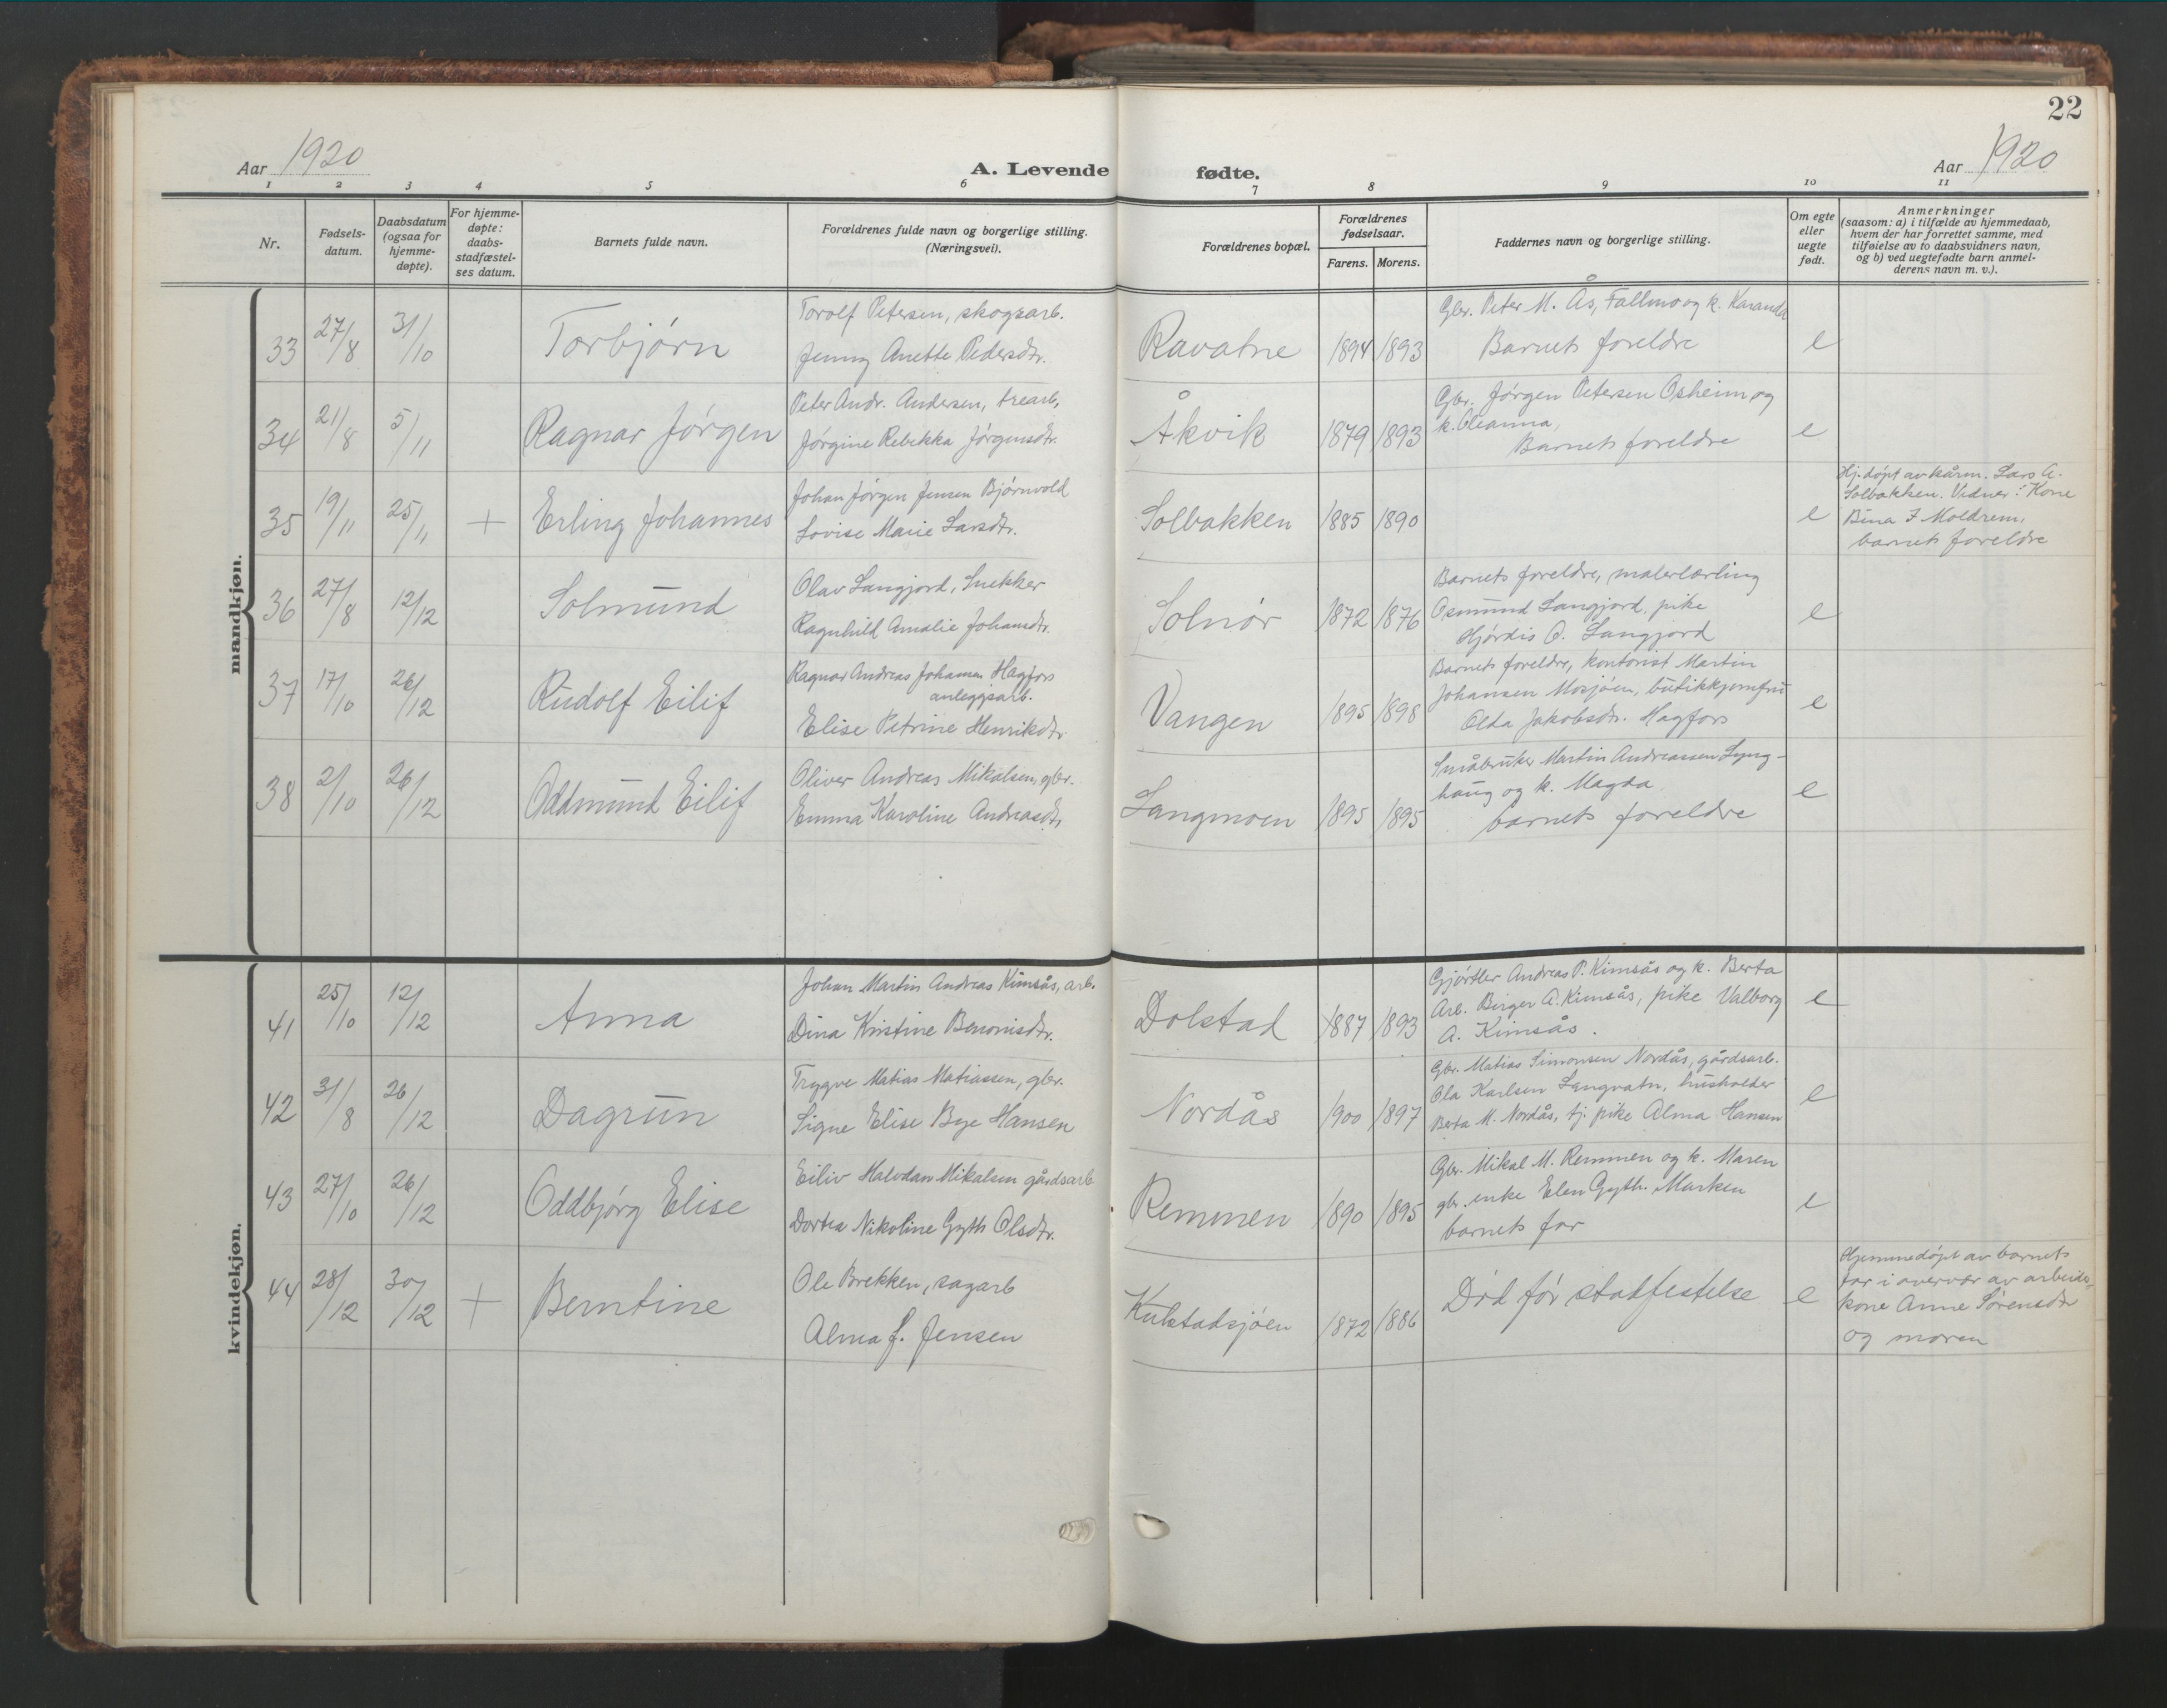 22
Aar 1920
A. Levende fødte.
Aar 1920
1 2 3 4 5 6 7 8 9 10 11
Nr.
Fødsels-
datum.
Daabsdatum
(ogsaa for
hjemme-
døpte).
For hjemme-
døpte:
daabs-
stadfæstel-
ses datum.
Barnets fulde navn.
Forældrenes fulde navn og borgerlige stilling.
(Næringsvei).
Forældrenes bopæl.
Forældrenes
fødselsaar.
Farens. Morens.
Faddernes navn og borgerlige stilling.
Om egte
eller
uegte
født.
Anmerkninger
(saasom: a) i tilfælde av hjemmedaab,
hvem der har forrettet samme, med
tilføielse av to daabsvidners navn,
og b) ved uegtefødte barn anmel-
derens navn m. v.).
mandkjøn.
33 27/8 31/10 Torbjørn
Torolf Petersen, skogsarb.
Jenny Anette Pedersdtr.
Ravatne 1894 1893
Gbr. Peter M. Ås, Fallmo og k. Karanda
Barnets foreldre
e
34 21/8 5/11 Ragnar Jørgen
Peter Andr. Andersen, trearb.
Jørgine Rebekka Jørgensdtr.
Åkvik 1879 1893
Gbr. Jørgen Petersen Osheim og
k. Oleanna,
Barnets foreldre
e
35 19/11 25/11 + Erling Johannes
Johan Jørgen Jensen Bjørnvold
Lovise Marie Larsdtr.
Solbakken 1885 1890
e
Hj. døpt av kårm. Lars A.
Solbakken. Vidner: Kone
Bina F Moldrem,
barnets foreldre
36 27/8 12/12 Solmund
Olav Langjord, Snekker
Ragnhild Amalie Johansdtr.
Solnør 1872 1876
Barnets foreldre, malerlærling
Osmund Langjord, pike
Hjørdis O. Langjord
e
37 17/10 26/12 Rudolf Eilif
Ragnar Andreas Johansen Hagfors
anleggsarb.
Elise Petrine Henrikdtr.
Vangen 1895 1898
Barnets foreldre, kontorist Martin
Johansen Mosjøen, butikkjomfru
Olda Jakobsdtr. Hagfors
e
38 2/10 26/12 Oddmund Eilif
Oliver Andreas Mikalsen, gbr.
Emma Karoline Andreasdtr.
Langmoen 1895 1895
Småbruker Martin Andreassen Lyng-
haug og k. Magda
barnets foreldre
e
kvindekjøn.
41 25/10 12/12 Anna
Johan Martin Andreas Kimsås, arb.
Dina Kristine Benonisdtr.
Dolstad 1887 1893
Gjørtler Andreas P. Kimsås og k. Berta
Arb. Birger A. Kimsås, pike Valborg
A. Kimsås.
e
42 31/8 26/12 Dagrun
Trygve Matias Matiassen, gbr.
Signe Elise Bye Hansen
Nordås 1900 1897
Gbr. Matias Simonsen Nordås, gårdsarb.
Ola Karlsen Langvatn, husholder
Berta M. Nordås, tj. pike Alma Hansen
e
43 27/10 26/12 Oddbjørg Elise
Eiliv Halvdan Mikalsen gårdsarb
Dortea Nikoline Gyth Olsdtr.
Remmen 1890 1895
Gbr. Mikal M. Remmen og k. Maren
gbr. enke Elen Gyth. Marken
barnets far
e
44 28/12 30/12 + Berntine
Ole Brekken, sagarb
Alma J. Jensen
Kulstadsjøen 1872 1886
Død før stadfestelse
e
Hjemmedøpt av barnets
far i overvær av arbeider-
kone Anne Sørensdtr
og moren